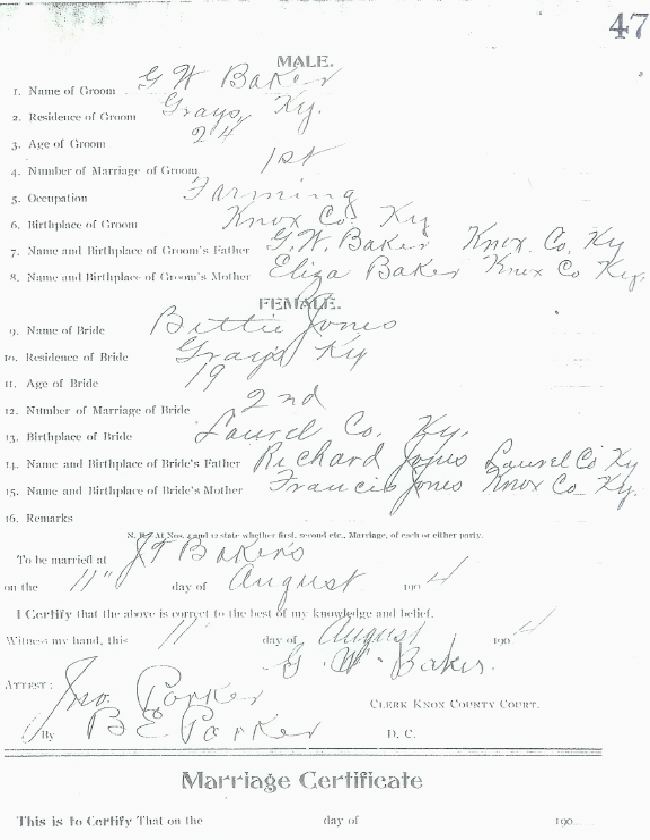 47
MALE.
1. Name of Groom G W Baker
2. Residence of Groom Grays, Ky.
3. Age of Groom 24
4. Number of Marriage of Groom 1st
5. Occupation Farming
6. Birthplace of Groom Knox Co. Ky
7. Name and Birthplace of Groom's Father G. W. Baker Knox Co. Ky
8. Name and Birthplace of Groom's Mother Eliza Baker Knox Co Ky.
FEMALE.
9. Name of Bride Bettie Jones
10. Residence of Bride Grays Ky
11. Age of Bride 19
12. Number of Marriage of Bride 2nd
13. Birthplace of Bride Laurel Co. Ky.
14. Name and Birthplace of Bride's Father Richard Jones Laurel Co Ky
15. Name and Birthplace of Bride's Mother Francis Jones Knox Co Ky.
16. Remarks
N. B. At Nos. 4 and 12 state whether first, second etc., Marriage, of each or either party.
To be married at Bakers
on the 11" day of August 1904
I Certify that the above is correct to the best of my knowledge and belief.
Witness my hand, this 11" day of August 1904
G W. Baker.
ATTEST: Jno. Parker
CLERK KNOX COUNTY COURT.
By B E. Parker D. C.
Marriage Certificate
This is to Certify That on the day of 190